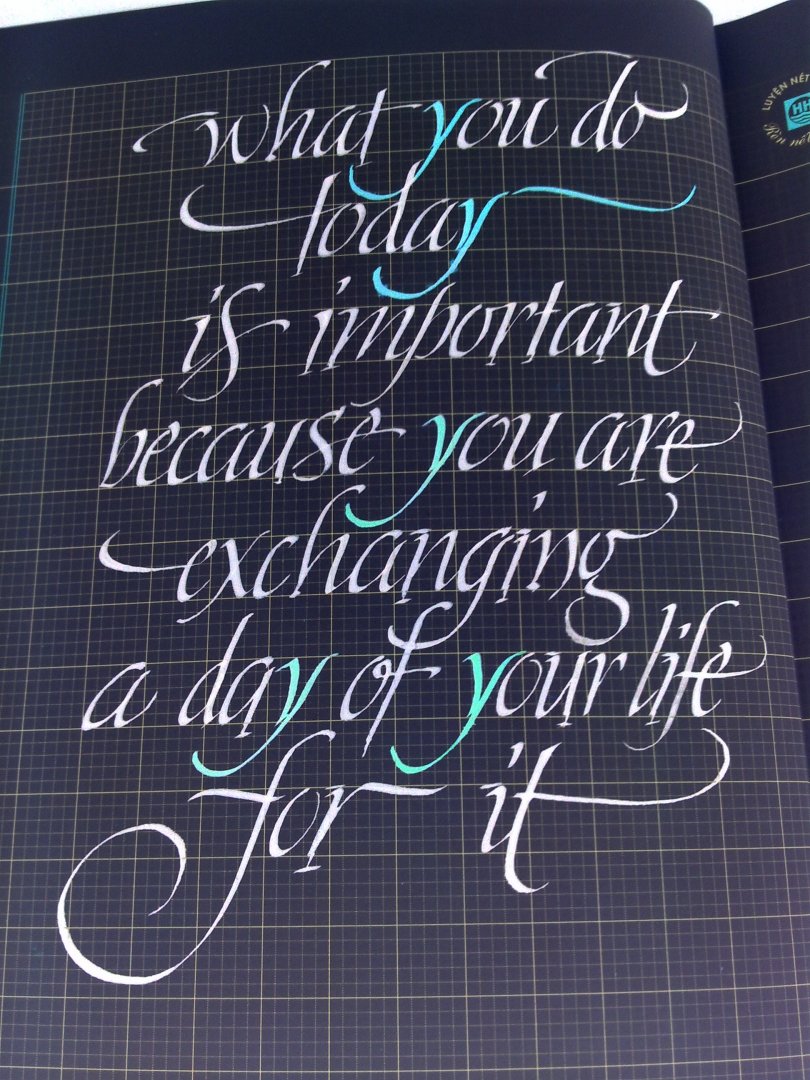 what you do
today
is important
because you are
exchanging
a day of your life
for it
LUYỆN NÉT
HH
Rèn nế